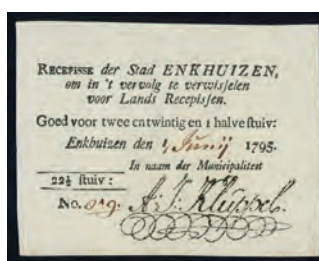 RECEPISSE der Stad ENKHUIZEN,
om in 't vervolg te verwisſelen
voor Lands Recepisſen.
Goed voor twee en twintig en 1 halve ſtuiv:
Enkhuizen den 1 Junij 1795.
In naam der Municipaliteit
22½ ſtuiv:
No. 949. A: J: Kluppel.